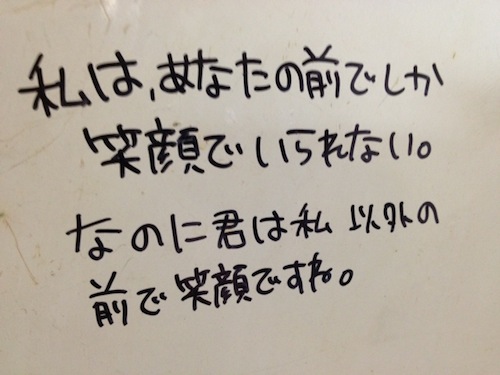 私は、あなたの前でしか
笑顔でいられない。
なのに君は私以外の
前で笑顔ですね。